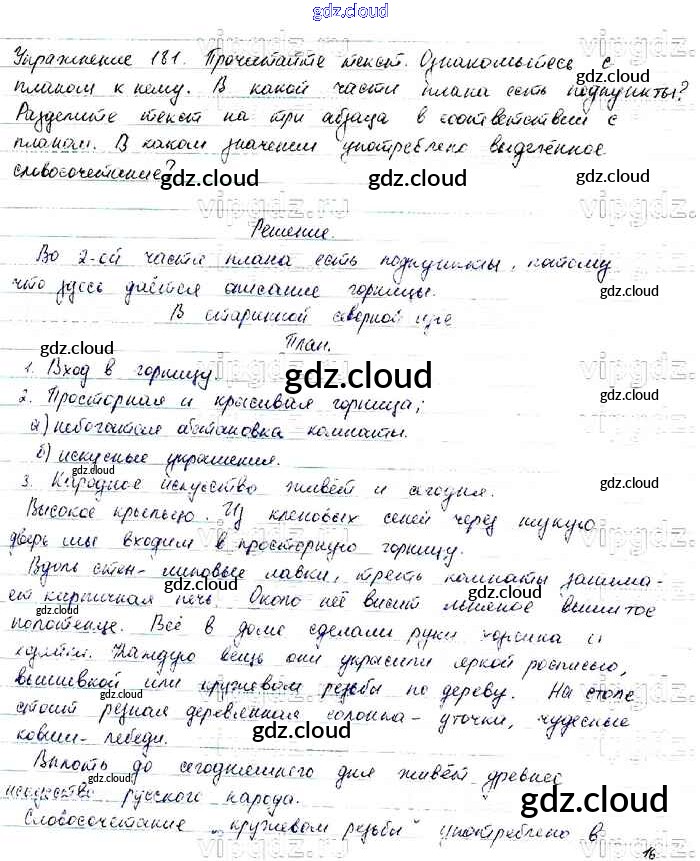 gdz.cloud
Упражнение 181. Прочитайте текст. Ознакомьтесь с
планом к нему. В какой части плана есть подпункты?
Разделите текст на три абзаца в соответствии с
планом. В каком значении употреблено выделенное
словосочетание?
Решение.
Во 2-ой части плана есть подпункты, потому
что здесь даётся описание горницы.
В старинной северной избе
План.
1. Вход в горницу.
2. Просторная и красивая горница;
а) небогатая обстановка комнаты.
б) искусные украшения.
3. Народное искусство живёт и сегодня.
Высокое крыльцо. Из кленовых сеней через
дверь мы входим в просторную горницу.
Вдоль стен - липовые лавки, треть комнаты занима-
ет кирпичная печь. Около неё висит льняное вышитое
полотенце. Всё в доме сделали руки хозяина и
хозяйки. Каждую вещь они украсили яркой росписью,
вышивкой или кружевом резьбы по дереву. На столе
стоит резная деревянная солонка - уточки, чудесные
ковши - лебеди.
Вплоть до сегодняшнего дня живёт древнее
искусство русского народа.
Словосочетание „кружевом резьбы" употреблено в
16